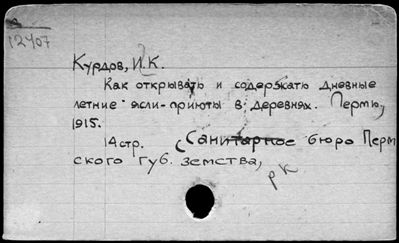 12407
Курдов, И.К.
Как открывать и содержать дневные
летние ясли-приюты в деревнях. Пермь,
1915.
14 стр. (Санитарное бюро Перм
ского губ. земства,
рк